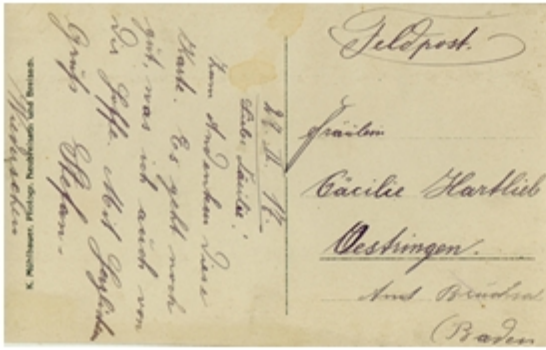 Feldpost.
Fräulein
Cäcilie Hartlieb
Oestringen.
Amt Bruchsa
(Baden
22. II. 17.
Liebe Cäcilie!
Zum Andenken Diese
Karte. Es geht noch
gut, was ich auch von
Dir hoffe. Mit Herzlichen
Gruß Stefan.
Wiedersehen
K. Mühlbauer, Photogr. und Breisach.